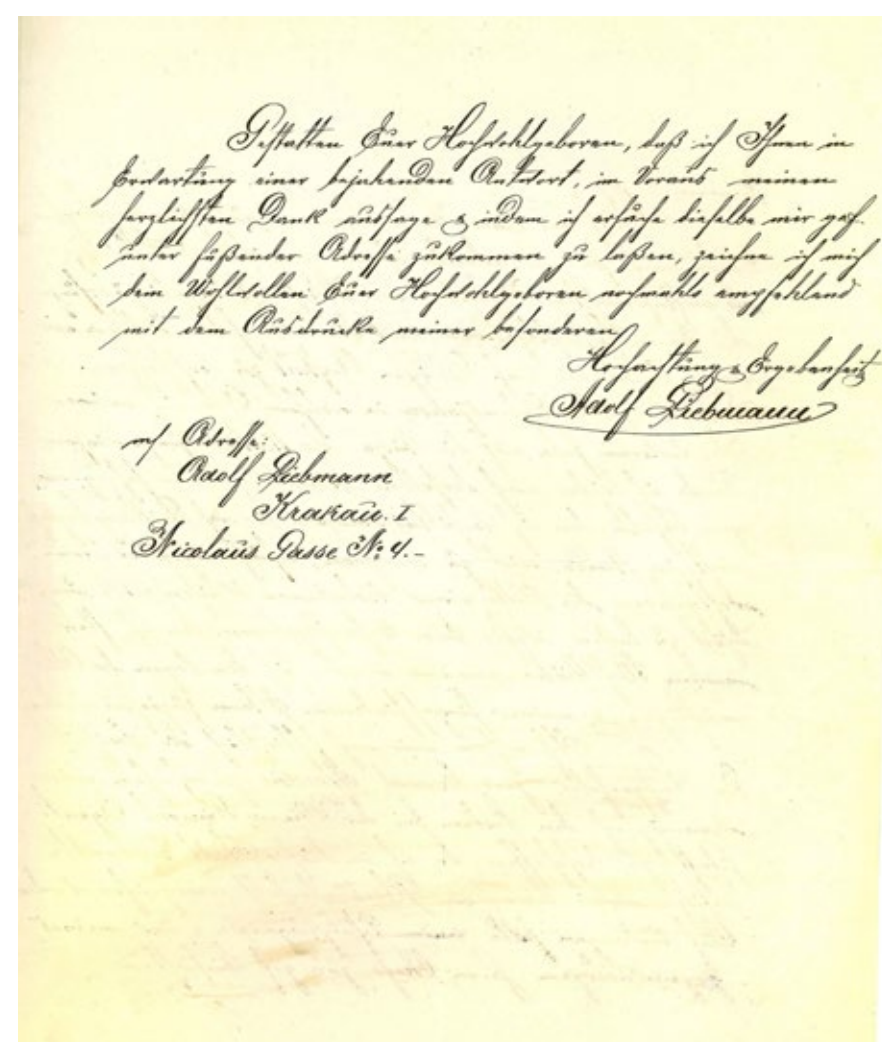 Gestatten Euer Hochwohlgeboren, daß ich Ihnen in
Erwartung einer bejahenden Antwort, im Voraus meinen
herzlichsten Dank aussage & indem ich ersuche dieselbe mir gef.
unter fußender Adresse zukommen zu laßen, zeichne ich mich
dem Wohlwollen Euer Hochwohlgeboren nochmahls empfehlend
mit dem Ausdrucke meiner besonderen
Hochachtung & Ergebenheit
Adolf Liebmann
Adresse:
Adolf Liebmann
Krakau. I
Nicolaus Gasse No 4.-